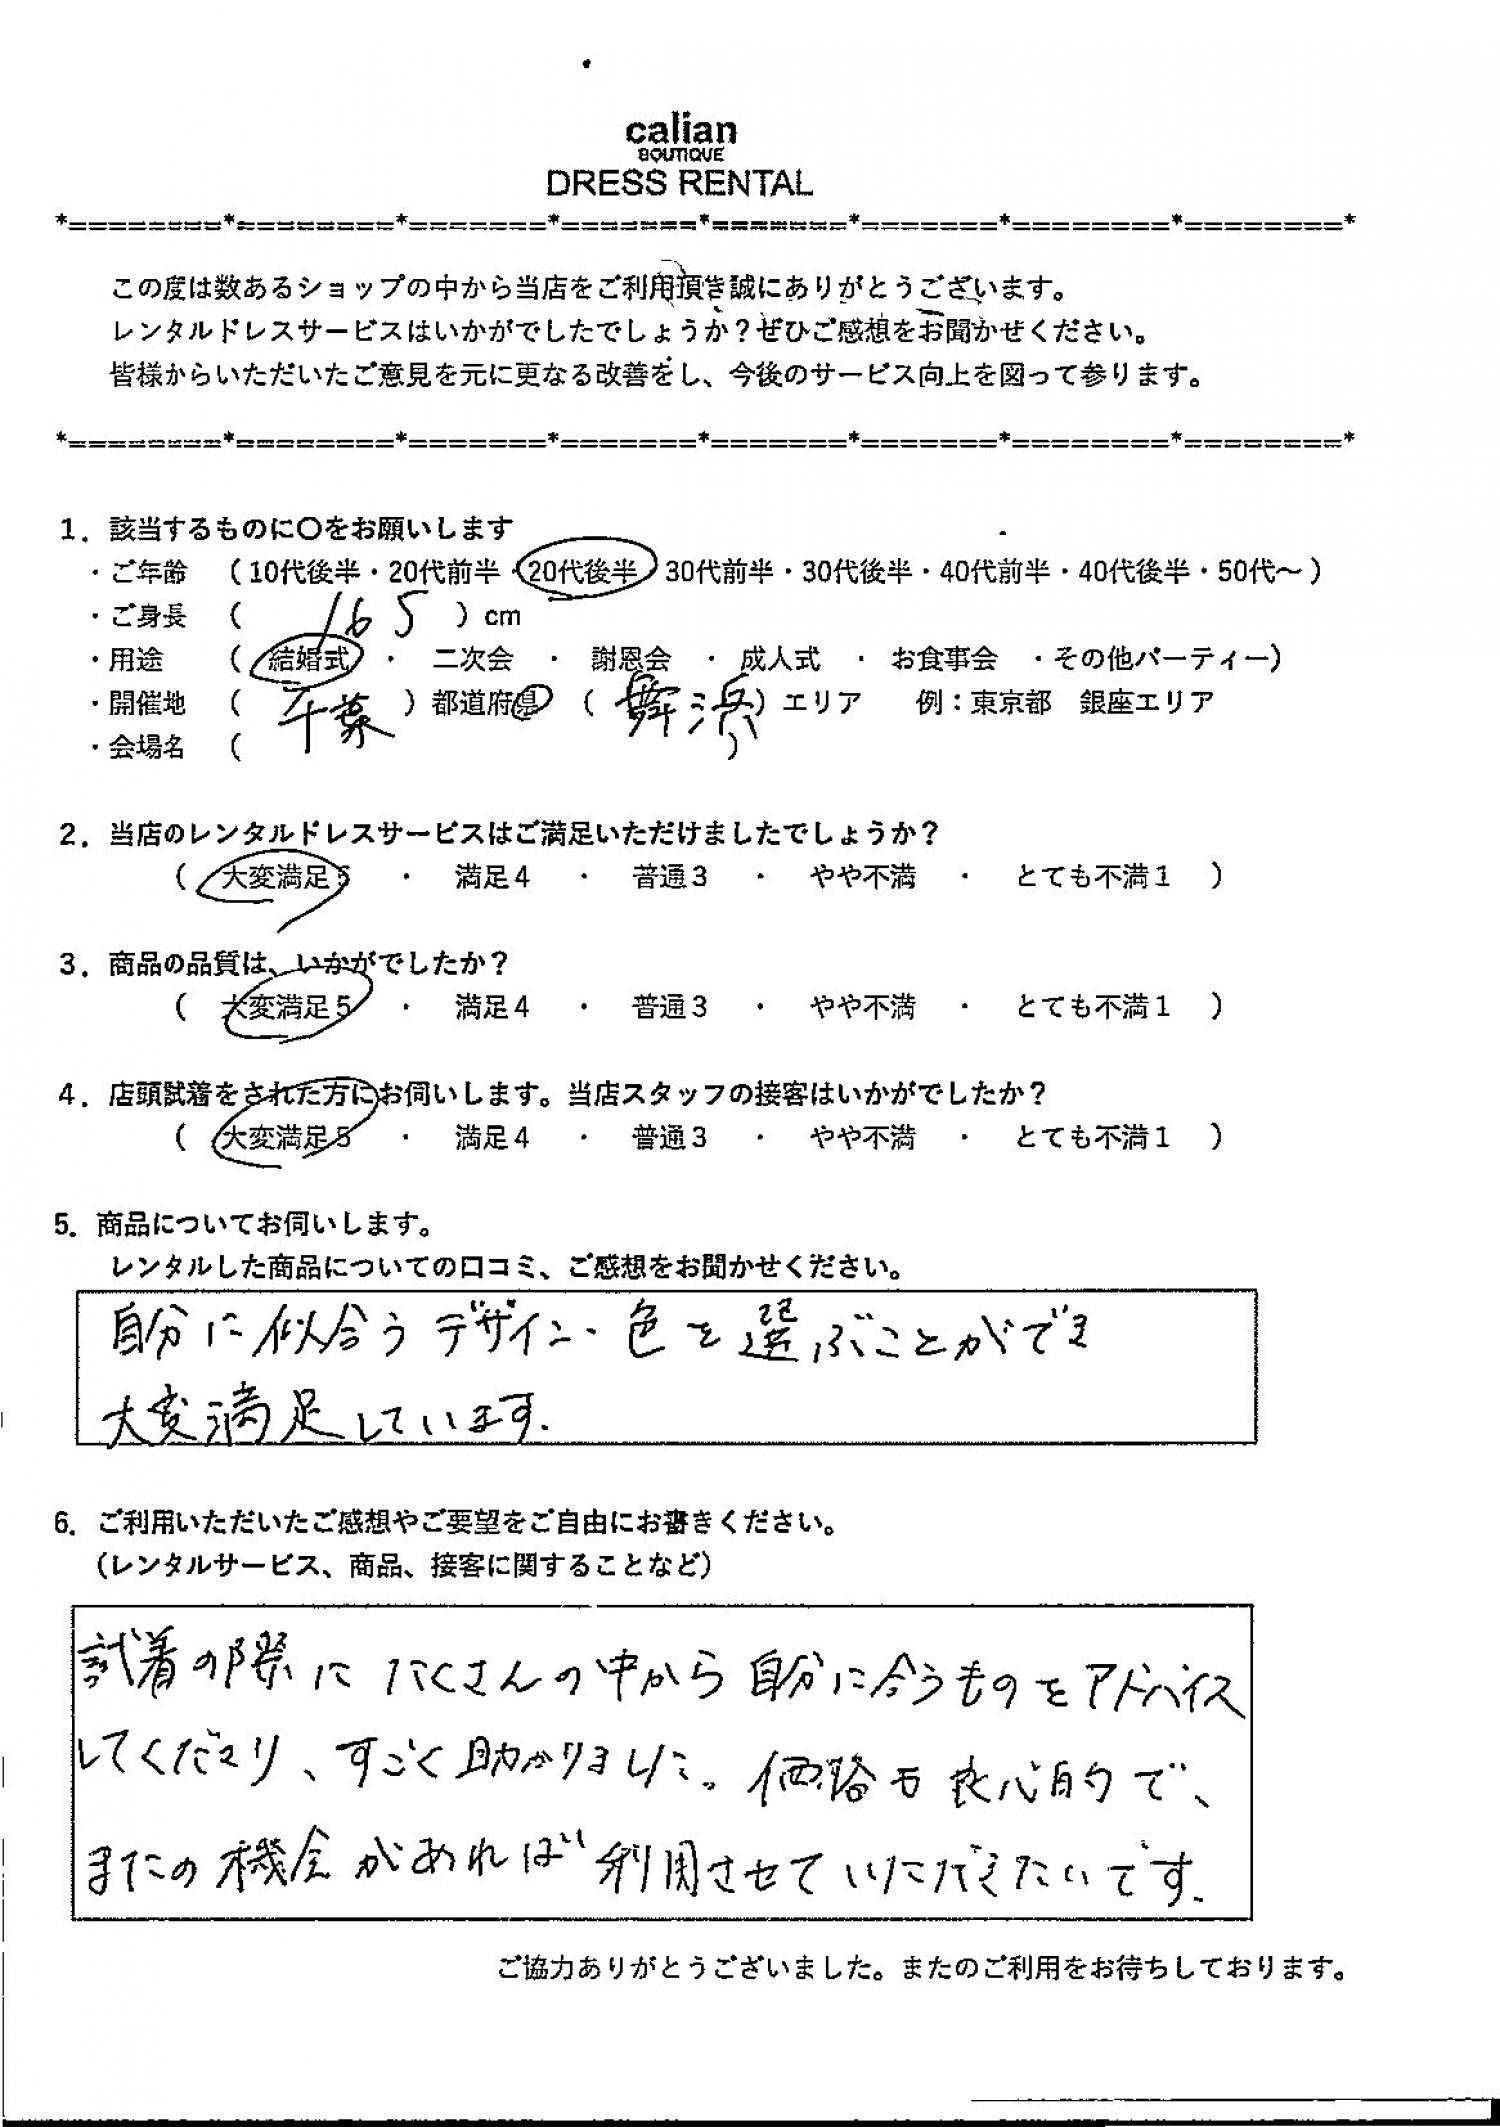 calian
BOUTIQUE
DRESS RENTAL
*========*========*=======*=======*=======*=======*========*========*
この度は数あるショップの中から当店をご利用頂き誠にありがとうございます。
レンタルドレスサービスはいかがでしたでしょうか？ぜひご感想をお聞かせください。
皆様からいただいたご意見を元に更なる改善をし、今後のサービス向上を図って参ります。
*========*========*=======*=======*=======*=======*========*========*
1．該当するものに〇をお願いします
・ご年齢　（10代後半・20代前半・20代後半・30代前半・30代後半・40代前半・40代後半・50代～）
・ご身長　（　165　）cm
・用途　（　結婚式　・　二次会　・　謝恩会　・　成人式　・　お食事会　・その他パーティー）
・開催地　（　千葉　）都道府県　（　舞浜　）エリア　例：東京都　銀座エリア
・会場名　（　　　）
2．当店のレンタルドレスサービスはご満足いただけましたでしょうか？
（　大変満足5　・　満足4　・　普通3　・　やや不満　・　とても不満1　）
3．商品の品質は、いかがでしたか？
（　大変満足5　・　満足4　・　普通3　・　やや不満　・　とても不満1　）
4．店頭試着をされた方にお伺いします。当店スタッフの接客はいかがでしたか？
（　大変満足5　・　満足4　・　普通3　・　やや不満　・　とても不満1　）
5．商品についてお伺いします。
レンタルした商品についての口コミ、ご感想をお聞かせください。
自分に似合うデザイン・色を選ぶことができ
大変満足しています.
6．ご利用いただいたご感想やご要望をご自由にお書きください。
（レンタルサービス、商品、接客に関することなど）
試着の際にたくさんの中から自分に合うものをアドバイス
してくださり、すごく助かりました。価格も良心的で、
またの機会があれば利用させていただきたいです.
ご協力ありがとうございました。またのご利用をお待ちしております。